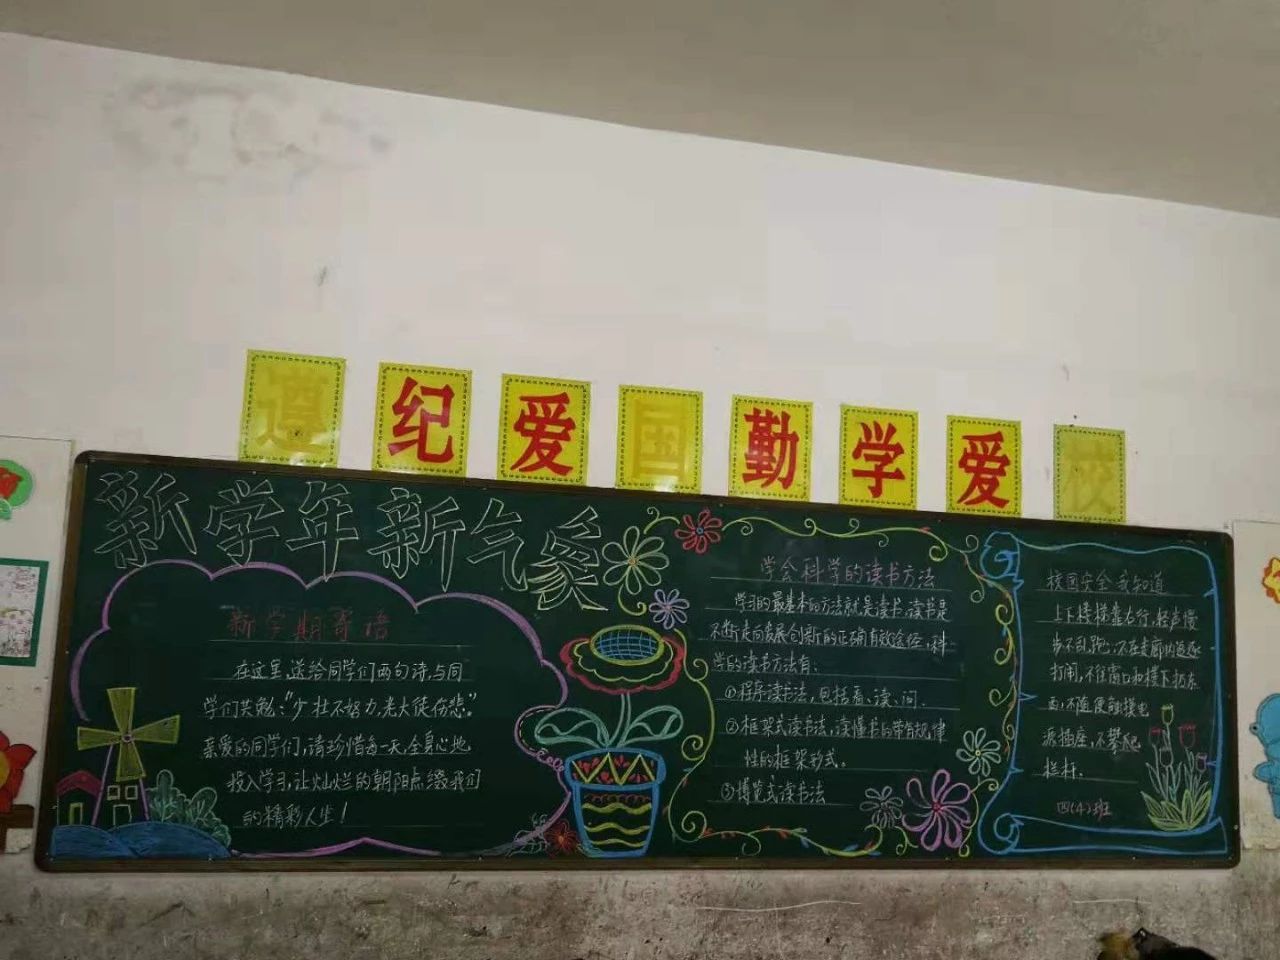 遵纪爱国勤学爱校
新学年新气象
新学期寄语
在这里,送给同学们两句诗,与同
学们共勉:“少壮不努力,老大徒伤悲。”
亲爱的同学们,请珍惜每一天,全身心地
投入学习,让灿烂的朝阳点缀我们
的精彩人生!
学会科学的读书方法
学习的最基本的方法就是读书,读书是
不断走向发展创新的正确有效途径,科
学的读书方法有:
①程序读书法,包括看、读、问.
②框架式读书法,读懂书的带有规律
性的框架形式。
③博览式读书法
校园安全我知道
上下楼梯靠右行,轻声慢
步不乱跑;不在走廊内追逐
打闹,不往窗口和楼下扔东
西;不随便触摸电
源插座,不攀爬
栏杆.
四(4)班